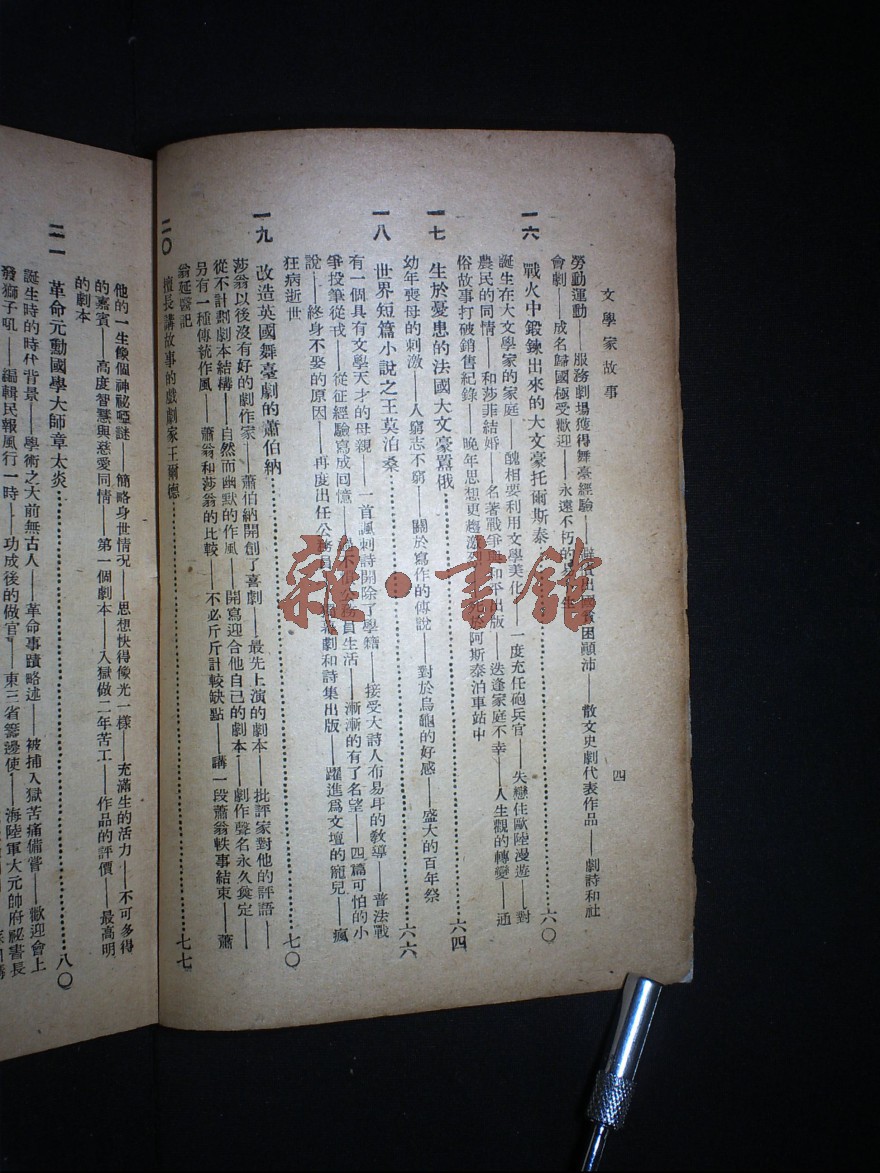 文學家故事
四
勞動運動——服務劇場獲得舞臺經驗——國貧困顚沛——散文史劇代表作品——劇詩和社
會劇——成名歸國極受歡迎——永遠不朽的
一六 戰火中鍛鍊出來的大文豪托爾斯泰……六〇
誕生在大文學家的家庭——醜相要利用文學美化——一度充任砲兵官——失戀住歐陸漫遊——對
農民的同情——和莎菲結婚——名著戰爭與和平出版——迭逢家庭不幸——人生觀的轉變——通
俗故事打破銷售紀錄——晚年思想更趨激烈——阿斯泰泊車站中
一七 生於憂患的法國大文豪囂俄……六四
幼年喪母的刺激——人窮志不窮——關於寫作的傳說——對於烏龜的好感——盛大的百年祭
一八 世界短篇小說之王莫泊桑……六六
有一個具有文學天才的母親——一首諷刺詩開除了學籍——接受大詩人布易耳的敎導——普法戰
爭投筆從戎——從征經驗寫成回憶——公務員生活——漸漸的有了名望——四篇可怕的小
說——終身不娶的原因——再度出任公務員——劇和詩集出版——躍進爲文壇的寵兒——瘋
狂病逝世
一九 改造英國舞臺劇的蕭伯納……七〇
莎翁以後沒有好的劇作家——蕭伯納開創了喜劇——最先上演的劇本——批評家對他的評語——
從不計劃劇本結構——自然而幽默的作風——開寫迎合他自己的劇本——劇作聲名永久奠定——
另有一種傳統作風——蕭翁和莎翁的比較——不必斤斤計較缺點——講一段蕭翁軼事結束——蕭
翁延醫記
二〇 擅長講故事的戲劇家王爾德……七七
他的一生像個神祕啞謎——簡略身世情況——思想快得像光一樣——充滿生的活力——不可多得
的嘉賓——高度智慧與慈愛同情——第一個劇本——入獄做二年苦工——作品的評價——最高明
的劇本
二一 革命元勳國學大師章太炎……八〇
誕生時的時代背景——學術之大前無古人——革命事蹟略述——被捕入獄苦痛備嘗——歡迎會上
發獅子吼——編輯民報風行一時——功成後的做官——東三省籌邊使——海陸軍大元帥府祕書長
雜·書館